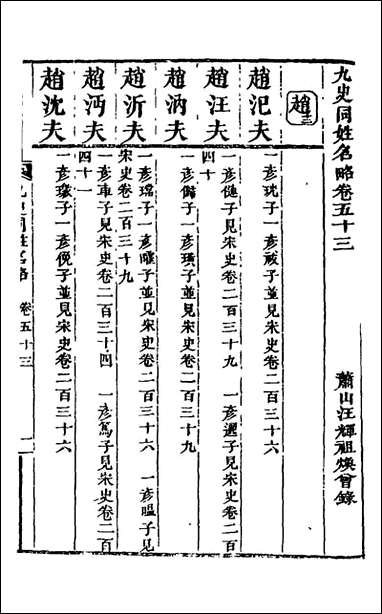 九史同姓名略卷五十三
蕭山汪輝祖煥曾錄
趙三
趙汜夫
一彥玧子一彥祓子並見宋史卷二百三十六
趙汪夫
一彥僆子見宋史卷二百三十九 一彥遇子見宋史卷二百
四十
趙汭夫
一彥歸子一彥璜子並見宋史卷二百三十九
趙沂夫
一彥瑠子一彥曤子並見宋史卷二百三十六 一彥嗢子見
宋史卷二百三十九
趙沔夫
一彥車子見宋史卷二百三十四 一彥寫子見宋史卷二百
四十一
趙沈夫
一彥璖子一彥俛子並見宋史卷二百三十六
九史同姓名略 卷五十三 一